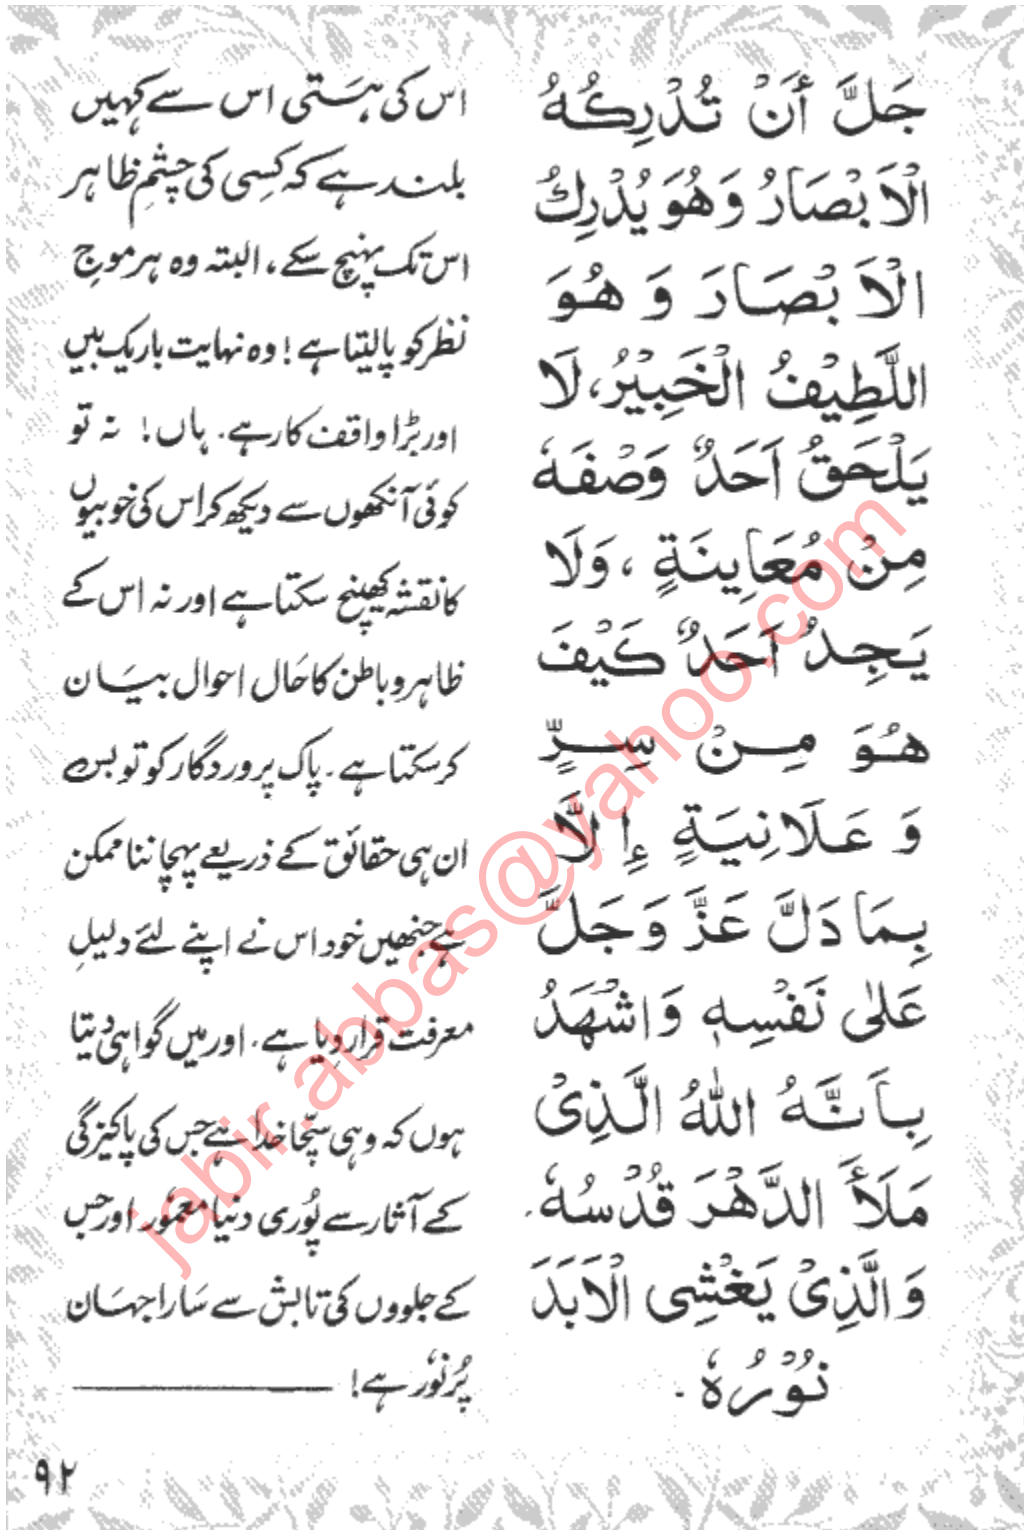 جَلَّ أَنْ تُدْرِكُهُ
الْاَبْصَارُ وَهُوَ يُدْرِكُ
الْاَبْصَارَ وَ هُوَ
اللَّطِيْفُ الْخَبِيْرُ، لَا
يَلْحَقُ اَحَدٌ وَصْفَهٗ
مِنْ مُعَايِنَةٍ ، وَلَا
يَجِدُ اَحَدٌ كَيْفَ
هُوَ مِنْ سِرٍّ
وَ عَلَانِيَةٍ إِلَّا
بِمَا دَلَّ عَزَّ وَجَلَّ
عَلٰى نَفْسِهٖ وَاشْهَدُ
بِاَنَّهُ اللهُ الَّذِىْ
مَلَأَ الدَّهْرَ قُدْسُهٗ.
وَالَّذِىْ يَغْشِى الْاَبَدَ
نُوْرُهٗ.
اس کی ہستی اس سے کہیں
بلند ہے کہ کسِی کی چشمِ ظاہر
اس تک پہنچ سکے، البتہ وہ ہر موجِ
نظر کو پا لیتا ہے! وہ نہایت باریک بیں
اور بڑا واقف کار ہے. ہاں! نہ تو
کوئی آنکھوں سے دیکھ کر اس کی خوبیوں
کا نقشہ کھینچ سکتا ہے اور نہ اس کے
ظاہر و باطن کا حَال احوال بیَان
کر سکتا ہے. پاک پروردگار کو تو بس
ان ہی حقائق کے ذریعے پہچاننا ممکن
ہے جنھیں خود اس نے اپنے لئے دلیلِ
معرفت قرار دیا ہے. اور میں گواہی دیتا
ہوں کہ وہی سچّا خدا ہے جس کی پاکیزگی
کے آثار سے پُوری دنیا معمُور اور جس
کے جلووں کی تابش سے سَارا جہَان
پُر نُور ہے!
۹۲
jabir.abbas@yahoo.com